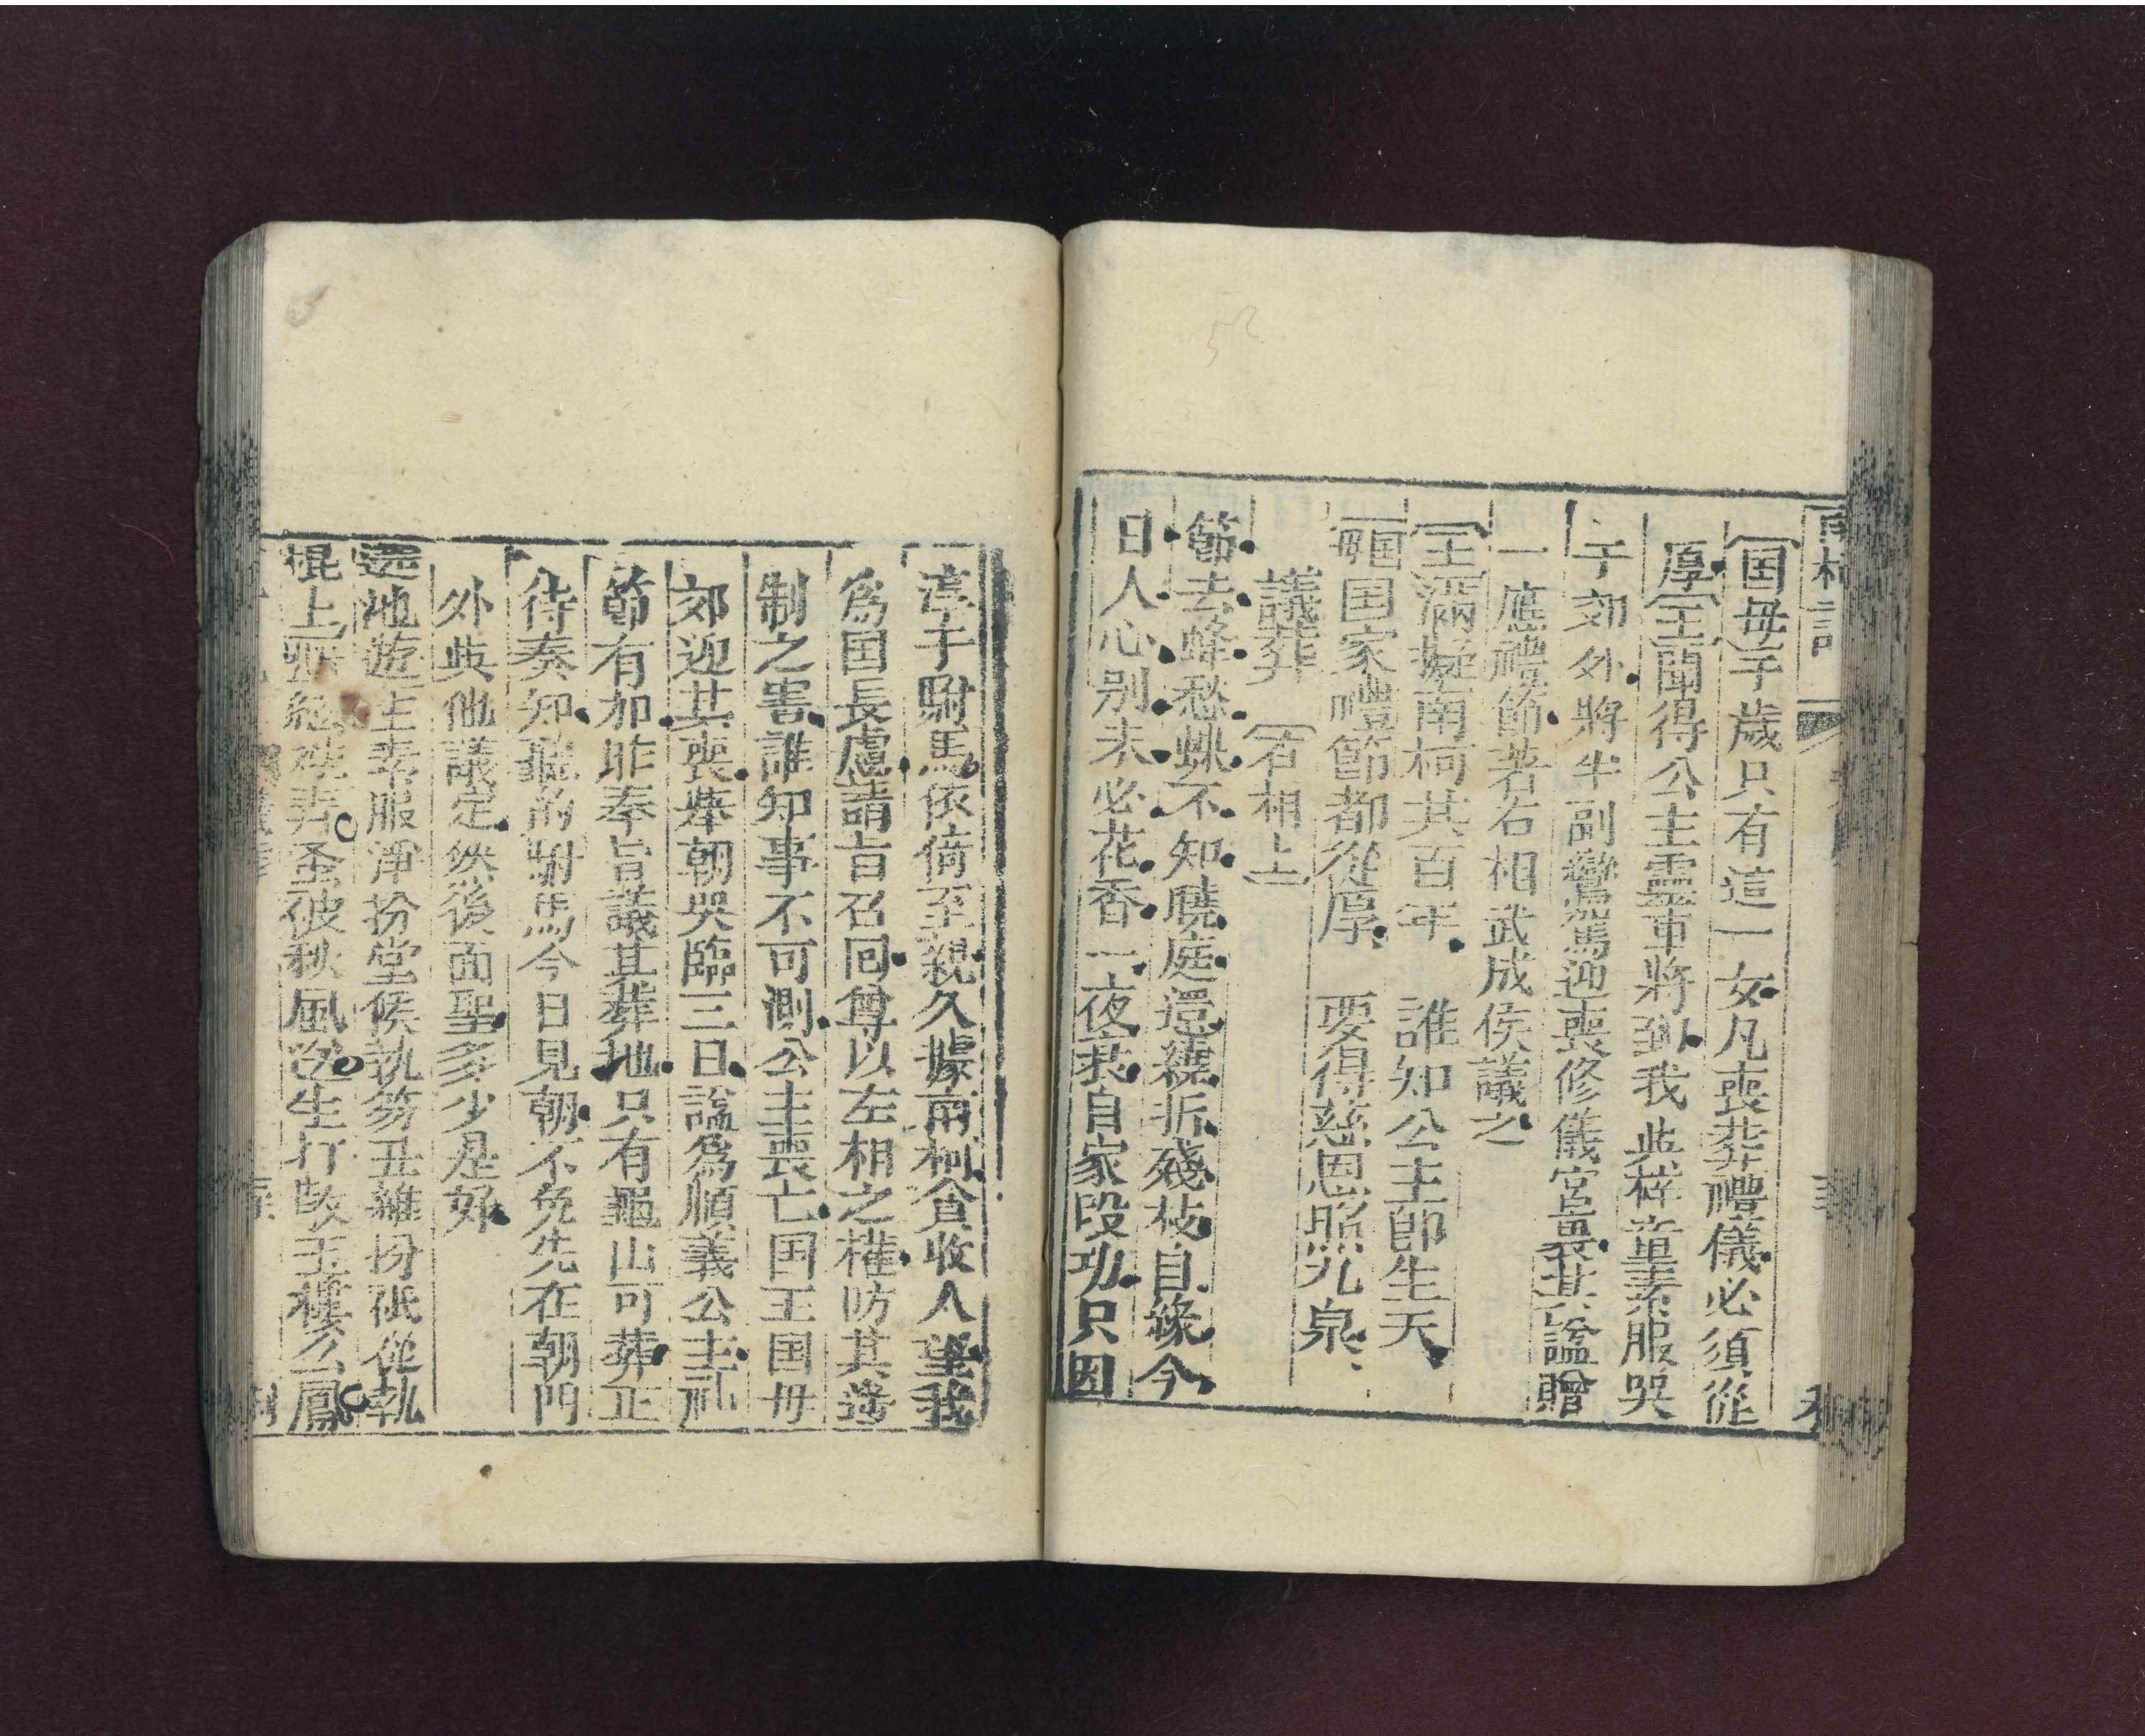 南柯記
国母千歲只有這一女凡喪葬禮儀必須從
厚王聞得公主靈車將到我與梓童素服哭
于郊外將半副鑾駕迎喪修儀宮裏其謚贈
一應禮節着右相武成侯議之
王滿擬南柯共百年 誰知公主即生天
国母国家禮節都從厚 要得慈恩照九泉
議葬 右相上
節去蜂愁蝶不知曉庭還繞折殘枝自緣今
日人心别未必花香一夜衰自家段功只因
淳于駙馬依倚至親久據南柯貪收人望我
爲国長慮請旨召回尊以左相之權防其
制之害誰知事不可測公主喪亡国王国母
郊迎其喪舉朝哭臨三日謚爲順義公主礼
節有加昨奉旨議其葬地只有龜山可葬正
待奏知聽的駙馬今日見朝不免先在朝門
外與他議定然後面聖多少是好
遶池遊生素服淨扮堂候執笏丑雜扮祇從執
棍上
蚤被秋風
生打散玉樓
鳳